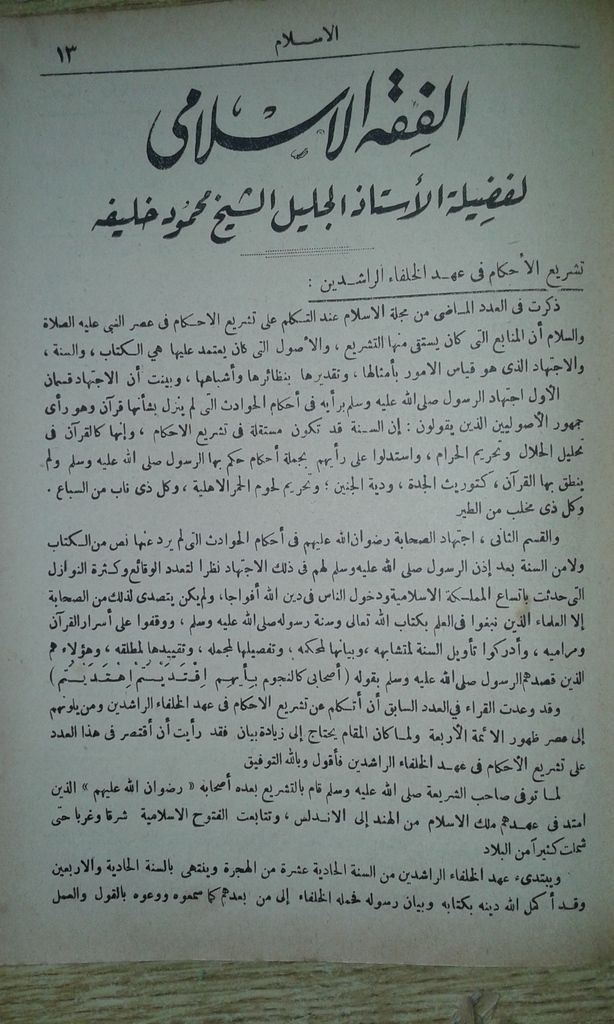 الاسلام
١٣
الفقه الاسلامى
لفضيلة الأستاذ الجليل الشيخ محمود خليفه
تشريع الأحكام فى عهد الخلفاء الراشدين :
ذكرت فى العدد الماضى من مجلة الاسلام عند التكلم على تشريع الاحكام فى عصر النبى عليه الصلاة
والسلام أن المنابع التى كان يستقى منها التشريع ، والأصول التى كان يعتمد عليها هي الكتاب ، والسنة ،
والاجتهاد الذى هو قياس الامور بأمثالها ، وتقديرها بنظائرها وأشباهها ، وبينت أن الاجتهاد قسمان
الأول اجتهاد الرسول صلى الله عليه وسلم برأيه فى أحكام الحوادث التى لم ينزل بشأنها قرآن وهو رأى
جمهور الأصوليين الذين يقولون : إن السنة قد تكون مستقلة فى تشريع الاحكام ، وإنها كالقرآن فى
تحليل الحلال وتحريم الحرام ، واستدلوا على رأيهم بجملة أحكام حكم بها الرسول صلى الله عليه وسلم ولم
ينطق بها القرآن ، كتوريث الجدة ، ودية الجنين ؛ وتحريم لحوم الحمر الاهلية ، وكل ذى ناب من السباع .
وكل ذى مخلب من الطير
والقسم الثانى ، اجتهاد الصحابة رضوان الله عليهم فى أحكام الحوادث التى لم يرد عنها نص من الكتاب
ولا من السنة بعد إذن الرسول صلى الله عليه وسلم لهم فى ذلك الاجتهاد نظرا لتعدد الوقائع وكثرة النوازل
التى حدثت باتساع المملكة الاسلامية ودخول الناس فى دين الله أفواجا، ولم يكن يتصدى لذلك من الصحابة
إلا العلماء الذين نبغوا فى العلم بكتاب الله تعالى وسنة رسوله صلى الله عليه وسلم ، ووقفوا على أسرار القرآن
ومراميه ، وأدركوا تأويل السنة لمتشابهه ، وبيانها لمحكمه ، وتفصيلها لمجمله ، وتقييدها لمطلقه ، وهؤلاء هم
الذين قصدهم الرسول صلى الله عليه وسلم بقوله ( أصحابى كالنجوم بأيهم اقتديتم اهتديتم )
وقد وعدت القراء فى العدد السابق أن أتكلم عن تشريع الاحكام فى عهد الخلفاء الراشدين ومن يلونهم
إلى عصر ظهور الائمة الأربعة ولما كان المقام يحتاج إلى زيادة بيان فقد رأيت أن أقتصر فى هذا العدد
على تشريع الأحكام فى عهد الخلفاء الراشدين فأقول وبالله التوفيق
لما توفى صاحب الشريعة صلى الله عليه وسلم قام بالتشريع بعده أصحابه « رضوان الله عليهم » الذين
امتد فى عهدهم ملك الاسلام من الهند إلى الاندلس ، وتتابعت الفتوح الاسلامية شرقا وغربا حتى
شملت كثيرا من البلاد
ويبتدىء عهد الخلفاء الراشدين من السنة الحادية عشرة من الهجرة وينتهى بالسنة الحادية والاربعين
وقد أكمل الله دينه بكتابه وبيان رسوله فحمله الخلفاء إلى من بعدهم كما سمعوه ووعوه بالقول والعمل